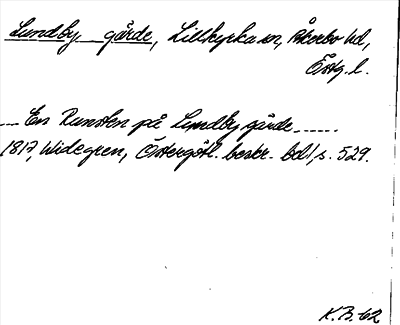 Lundby gärde, Lillkyrka sn, Åkerbo hd,
Östg. l.
... En Runsten på Lundby gärde ......
1817, Widegren, Östergötl. beskr. bd 1, s. 529.
K.B. 62